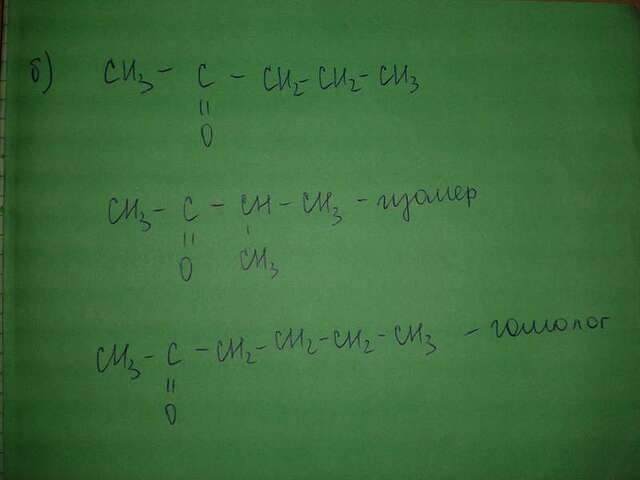 б) CH3 – C – CH2 – CH2 – CH3
||
O
CH3 – C – CH – CH3 – изомер
|| |
O CH3
CH3 – C – CH2 – CH2 – CH2 – CH3 – гомолог
||
O